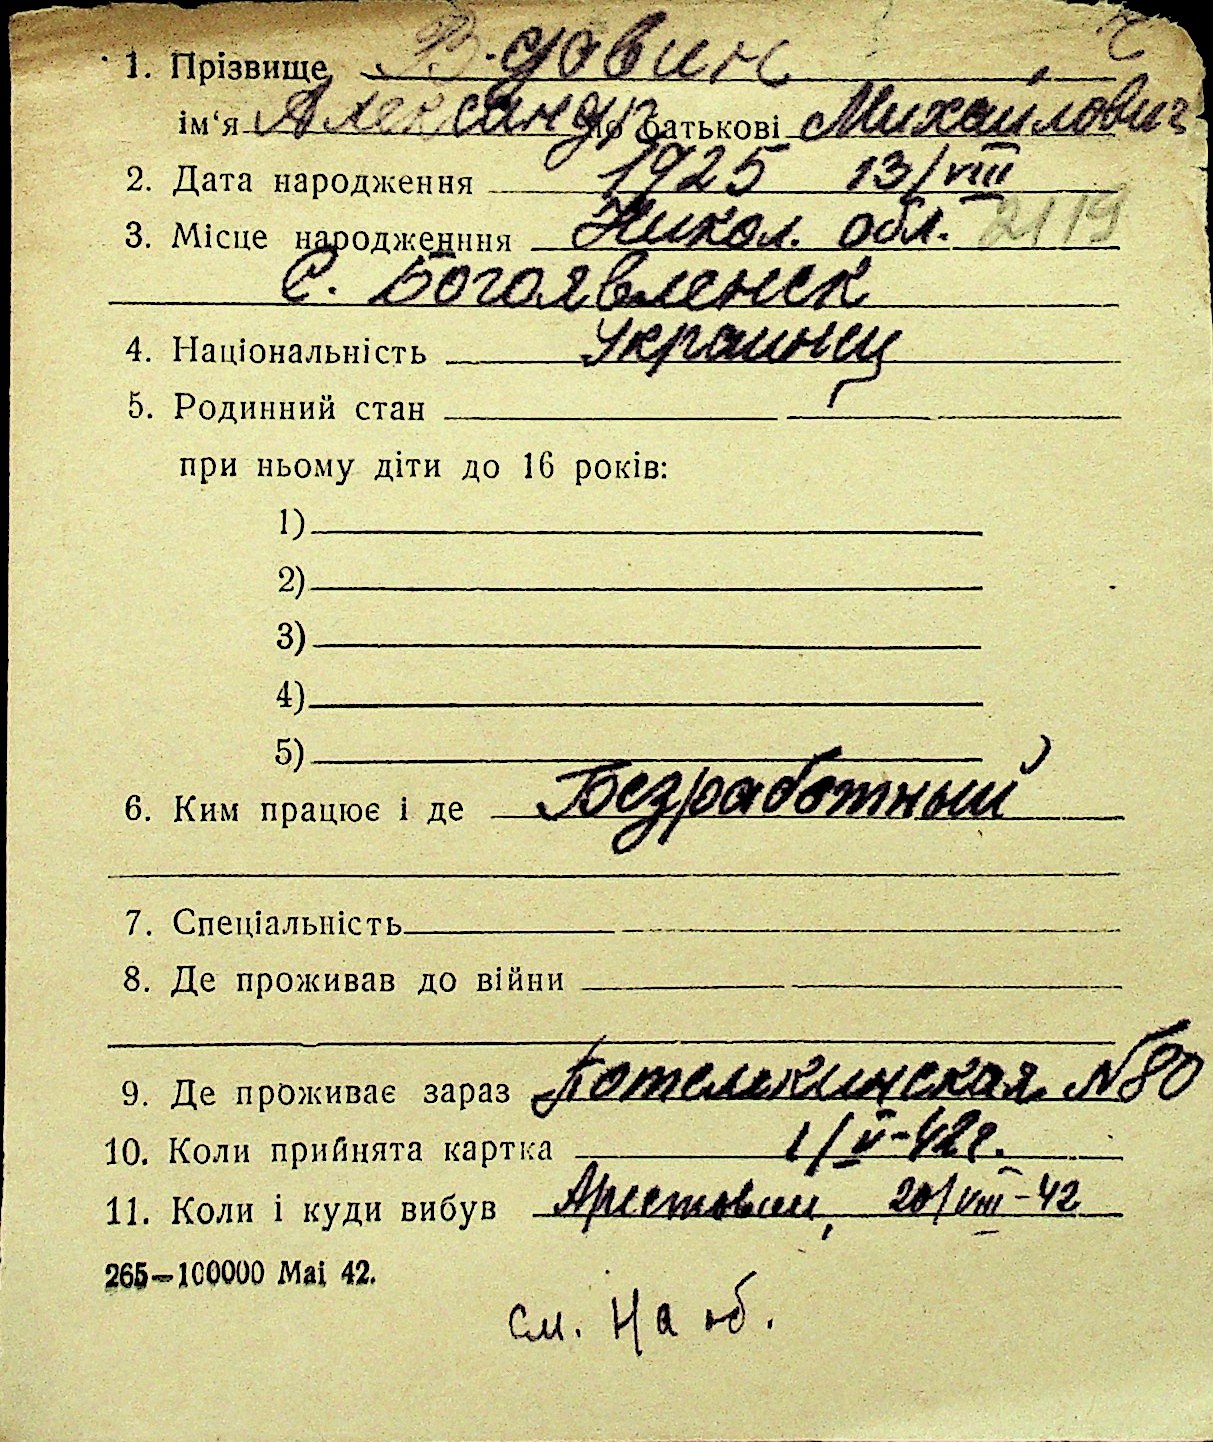 1. Прізвище Вдовин
ім‘я Александр по батькові Михайлович
2. Дата народження 1925 13/VIII
3. Місце народженння Никол. обл. 2119
С. Богоявленск
4. Національність Украинец
5. Родинний стан
при ньому діти до 16 років:
1)
2)
3)
4)
5)
6. Ким працює і де Безработный
7. Спеціальність
8. Де проживав до війни
9. Де проживає зараз Потемкинская №80
10. Коли прийнята картка 1/V-42г.
11. Коли і куди вибув Арестован, 20/VIII-42
265—100000 Mai 42.
См. На об.